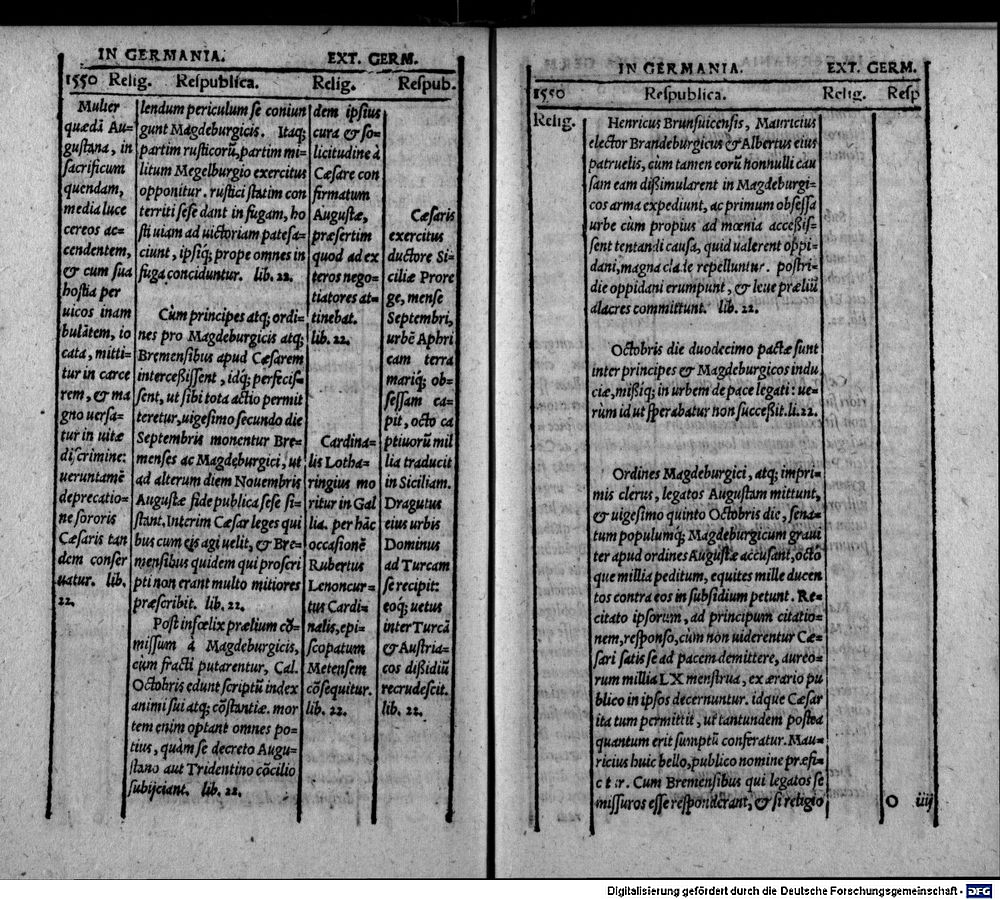 IN GERMANIA.
EXT. GERM.
1550 Relig. Respublica. Relig. Respub.
Mulier
quædā Au-
gustana, in
sacrificum
quendam,
media luce
cereos ac-
cendentem,
& cum sua
hostia per
uicos inam
bulātem, io
cata, mitti-
tur in carce
rem, & ma
gno uersa-
tur in uitæ
discrimine:
ueruntamē
deprecatio-
ne sororis
Cæsaris tan
dem conser
uatur. lib.
22.
lendum periculum se coniun
gunt Magdeburgicis. Itaq;
partim rusticorū, partim mi-
litum Megelburgio exercitus
opponitur. rustici statim con
territi sese dant in fugam, ho
sti uiam ad uictoriam patefa-
ciunt, ipsiq; prope omnes in
fuga conciduntur. lib. 22.
Cùm principes atq; ordi-
nes pro Magdeburgicis atq;
Bremensibus apud Cæsarem
intercessissent, idq; perfecis-
sent, ut sibi tota actio permit
teretur, uigesimo secundo die
Septembris monentur Bre-
menses ac Magdeburgici, ut
ad alterum diem Nouembris
Augustæ fide publica sese si-
stant. Interim Cæsar leges qui
bus cum eis agi uelit, & Bre-
mensibus quidem qui proscri
pti non erant multo mitiores
præscribit. lib. 22.
Post infœlix prælium cō-
missum à Magdeburgicis,
cum fracti putarentur, Cal.
Octobris edunt scriptū index
animi sui atq; cōstantiæ. mor
tem enim optant omnes po-
tius, quàm se decreto Augu-
stano aut Tridentino cōcilio
subijciant. lib. 22.
dem ipsius
cura & so-
licitudine à
Cæsare con
firmatum
Augustæ,
præsertim
quod ad ex
teros nego-
tiatores at-
tinebat.
lib. 22.
Cardina-
lis Lotha-
ringius mo
ritur in Gal
lia. per hāc
occasionē
Rubertus
Lenoncur-
tus Cardi-
nalis, epi-
scopatum
Metensem
cōsequitur.
lib. 22.
Cæsaris
exercitus
ductore Si-
ciliæ Prore
ge, mense
Septembri,
urbē Aphri
cam terra
mariq; ob-
sessam ca-
pit, octo ca
ptiuorū mil
lia traducit
in Siciliam.
Dragutus
eius urbis
Dominus
ad Turcam
se recipit:
eoq; uetus
inter Turcā
& Austria-
cos dissidiū
recrudescit.
lib. 22.
IN GERMANIA. EXT. GERM.
1550 Respublica. Relig. Resp
Relig.
Henricus Brunsuicensis, Mauricius
elector Brandeburgicus & Albertus eius
patruelis, cùm tamen eorū nonnulli cau
sam eam dissimularent in Magdeburgi-
cos arma expediunt, ac primum obsessa
urbe cùm propius ad mœnia accessis-
sent tentandi causa, quid ualerent oppi-
dani, magna clade repelluntur. postri-
die oppidani erumpunt, & leue præliū
alacres committunt. lib. 22.
Octobris die duodecimo pactæ sunt
inter principes & Magdeburgicos indu
ciæ, missiq; in urbem de pace legati: ue-
rùm id ut sperabatur non successit. li. 22.
Ordines Magdeburgici, atq; impri-
mis clerus, legatos Augustam mittunt,
& uigesimo quinto Octobris die, sena-
tum populumq; Magdeburgicum graui
ter apud ordines Augustæ accusant, octo
que millia peditum, equites mille ducen
tos contra eos in subsidium petunt. Re-
citato ipsorum, ad principum citatio-
nem, responso, cùm non uiderentur Cæ-
sari satis se ad pacem demittere, aureo-
rum millia LX menstrua, ex ærario pu
blico in ipsos decernuntur. idque Cæsar
ita tum permittit, ut tantundem postea
quantum erit sumptū conferatur. Mau-
ricius huic bello, publico nomine præfi-
citur. Cum Bremensibus qui legatos se
missuros esse responderant, & si religio
O iiij
Digitalisierung gefördert durch die Deutsche Forschungsgemeinschaft - DFG